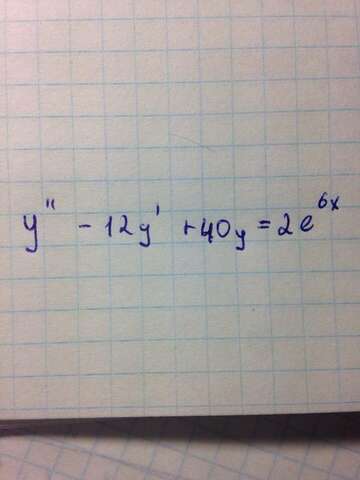 y'' - 12y' + 40y = 2e^{6x}